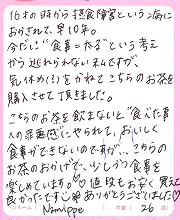 16才の時から摂食障害という病に
おかされて、早10年。
今だに"食事=太る"という考え
から逃れられない私ですが、
気休め(!)をかねてこちらのお茶を
購入させて頂きました。
こちらのお茶を飲まないと"食べた事
への罪悪感"にやられて、おいしく
食事ができないのですが、こちらの
お茶のおかげで、少しずつ食事を
楽しめています。値段もお安く買えて
良かったです。ありがとうございました♡
Namippe 年齢( 26 歳)